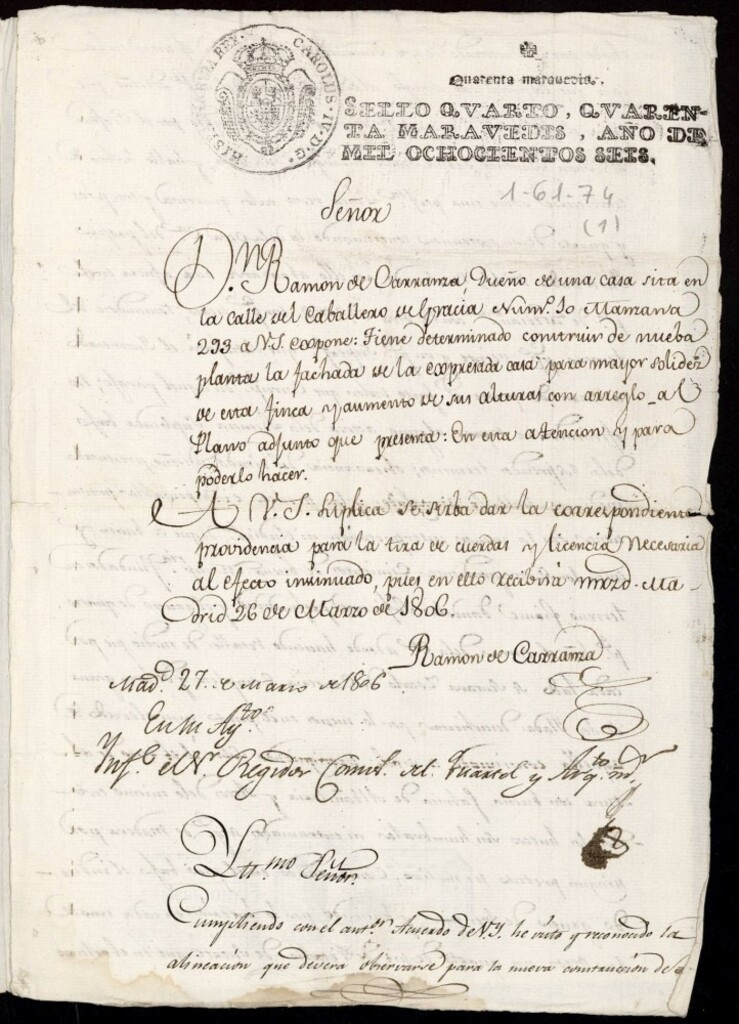 HISPANIARUM REX. CAROLUS. IV. D. G.
Quarenta maravedis.
SELLO QVARTO, QVAREN-
TA MARAVEDIS, AÑO DE
MIL OCHOCIENTOS SEIS.
1-61-74
(1)
Señor
D.ⁿ Ramon de Carranza, Dueño de una casa sita en
la calle del Caballero de Gracia Num.º 10 Manzana
293 a V.S. expone: Tiene determinado construir de nueba
planta la fachada de la expresada casa para mayor solidez
de esta finca y aumento de sus alturas con arreglo al
Plano adjunto que presenta: En esta atencion y para
poderlo hacer.
A V.S. suplica se sirba dar la correspondiente
providencia para la tira de cuerdas y licencia necesaria
al efecto insinuado, pues en ello recibirá mrzd. Ma-
drid 26 de Marzo de 1806.
Ramon de Carranza
Mad.d 27. de Marzo de 1806
En su Ay.to
Inf.e el S.r Regidor Comis.º del Quartel y Arq.to m.or
Ill.mo Señor.
Cumpliendo con el ant.or Acuerdo de V.I. he visto y reconocido la
alineación que devera observarse para la nueva construccion de